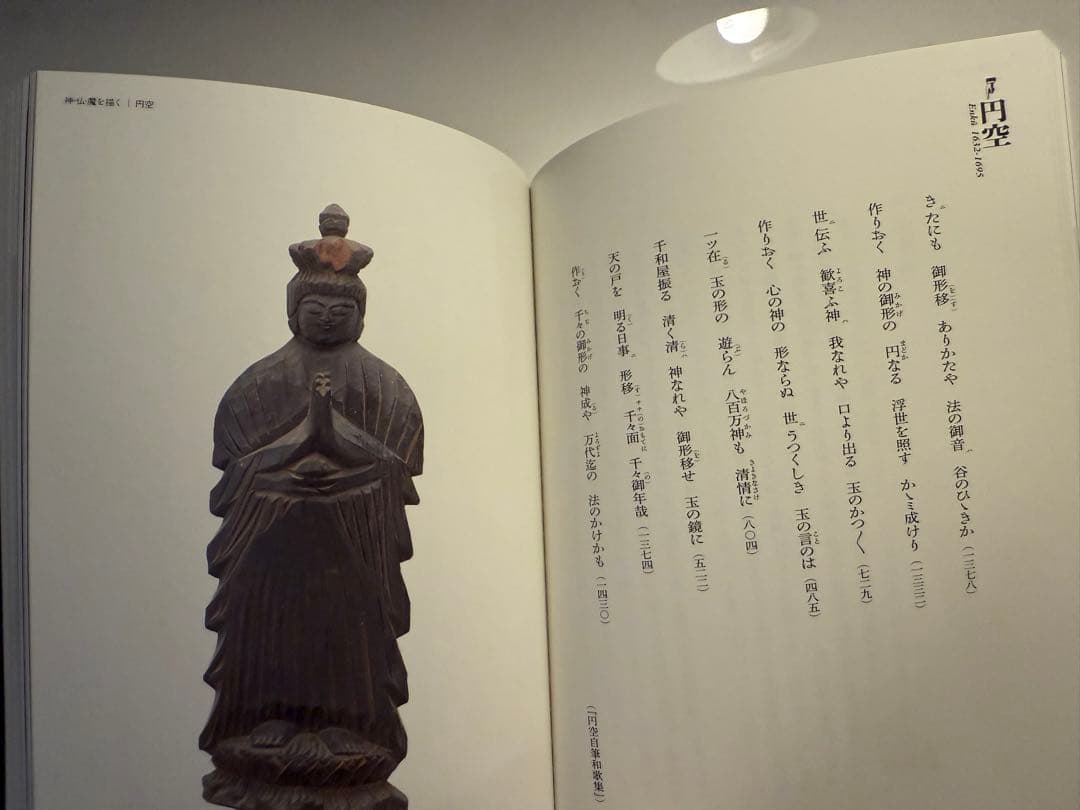 神・仏・魔を描く｜円空
円空
Enkū 1632-1695
きたにも 御形移 ありかたや 法の御音ハ 谷のひゝきか（一三七八）
作りおく 神の御形の 円なる 浮世を照す かゝミ成けり（一三三二）
世ニ伝ふ 歓喜ふ神ハ 我なれや 口より出る 玉のかつ〱（七二九）
作りおく 心の神の 形ならぬ 世ニうつくしき 玉の言のは（四八五）
一ッ在 玉の形の 遊らん 八百万神も 清情に（八〇四）
千和屋振る 清く清ハ 神なれや 御形移せ 玉の鏡に（五二二）
天の戸を 明る日事ニ 形移 千々面 千々御年哉（一三七四）
作おく 千々の御形の 神成や 万代迄の 法のかけかも（一四三〇）
（『円空自筆和歌集』）